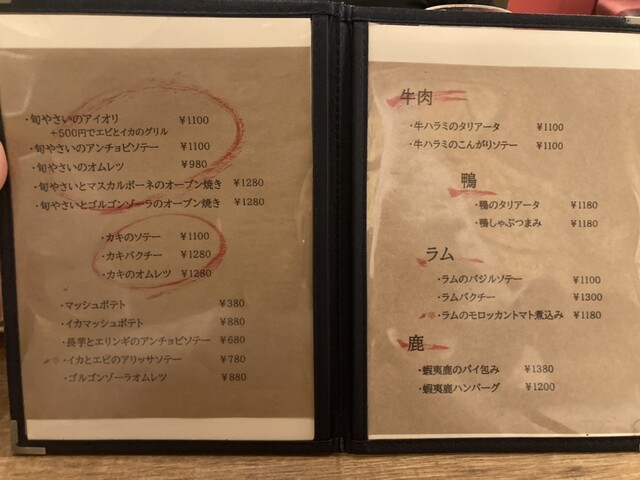 ・旬やさいのアイオリ ￥1100
＋500円でエビとイカのグリル
・旬やさいのアンチョビソテー ￥1100
・旬やさいのオムレツ ￥980
・旬やさいとマスカルポーネのオーブン焼き ￥1280
・旬やさいとゴルゴンゾーラのオーブン焼き ￥1280
・カキのソテー ￥1100
・カキパクチー ￥1280
・カキのオムレツ ￥1280
・マッシュポテト ￥380
・イカマッシュポテト ￥880
・長芋とエリンギのアンチョビソテー ￥680
・イカとエビのアリッサソテー ￥780
・ゴルゴンゾーラオムレツ ￥880
牛肉
・牛ハラミのタリアータ ￥1100
・牛ハラミのこんがりソテー ￥1100
鴨
・鴨のタリアータ ￥1180
・鴨しゃぶつまみ ￥1180
ラム
・ラムのバジルソテー ￥1100
・ラムパクチー ￥1300
・ラムのモロッカントマト煮込み ￥1180
鹿
・蝦夷鹿のパイ包み ￥1380
・蝦夷鹿ハンバーグ ￥1200